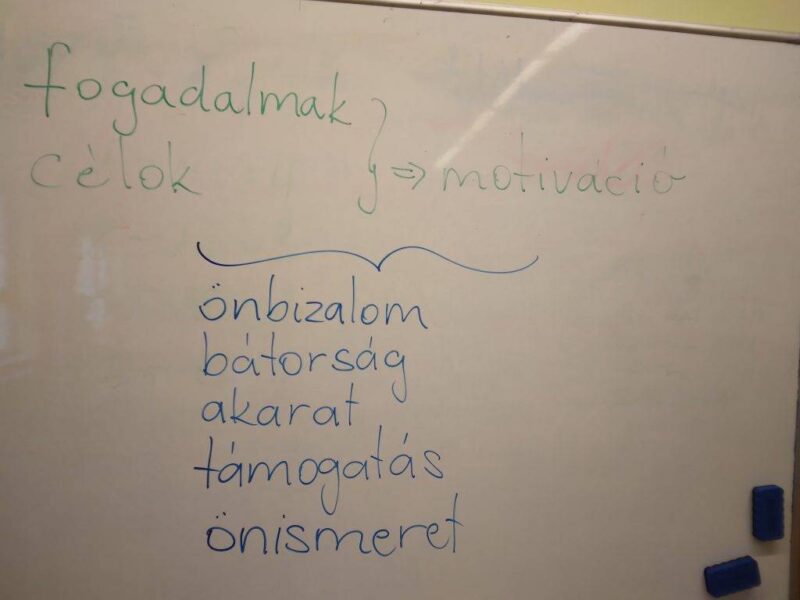 fogadalmak
célok } => motiváció
önbizalom
bátorság
akarat
támogatás
önismeret